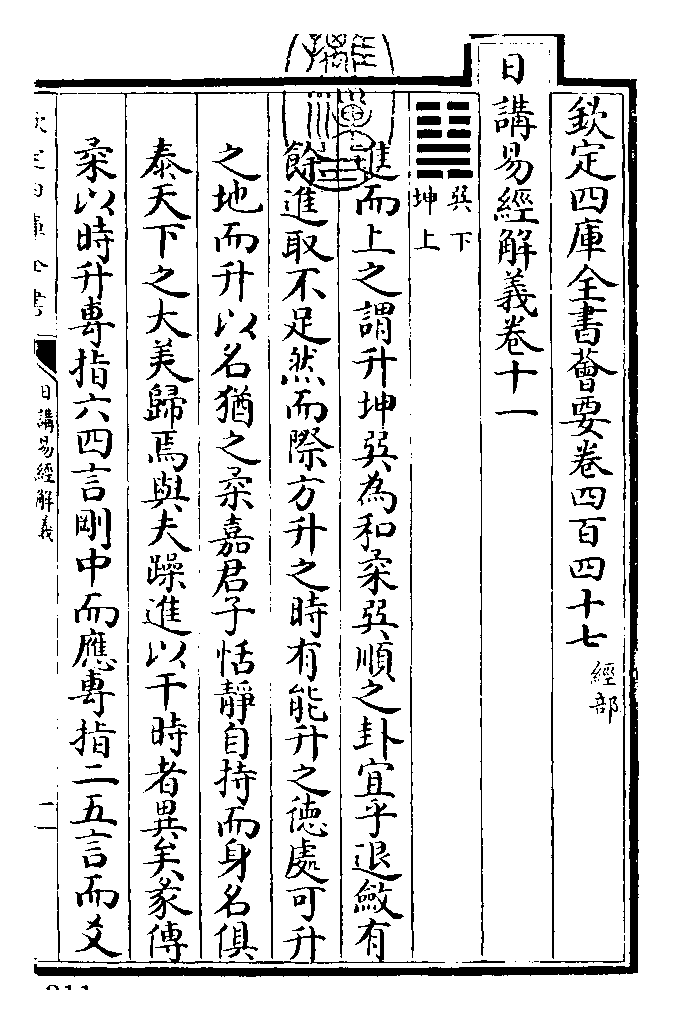 欽定四庫全書薈要卷四百四十七 經部
日講易經解義卷十一
巽下
坤上
進而上之謂升坤巽為和柔巽順之卦宜乎退斂有
餘進取不足然而際方升之時有能升之德處可升
之地而升以名猶之柔嘉君子恬靜自持而身名俱
泰天下之大美歸焉與夫躁進以干時者異矣彖傳
柔以時升專指六四言剛中而應專指二五言而爻
欽定四庫全書
日講易經解義
一